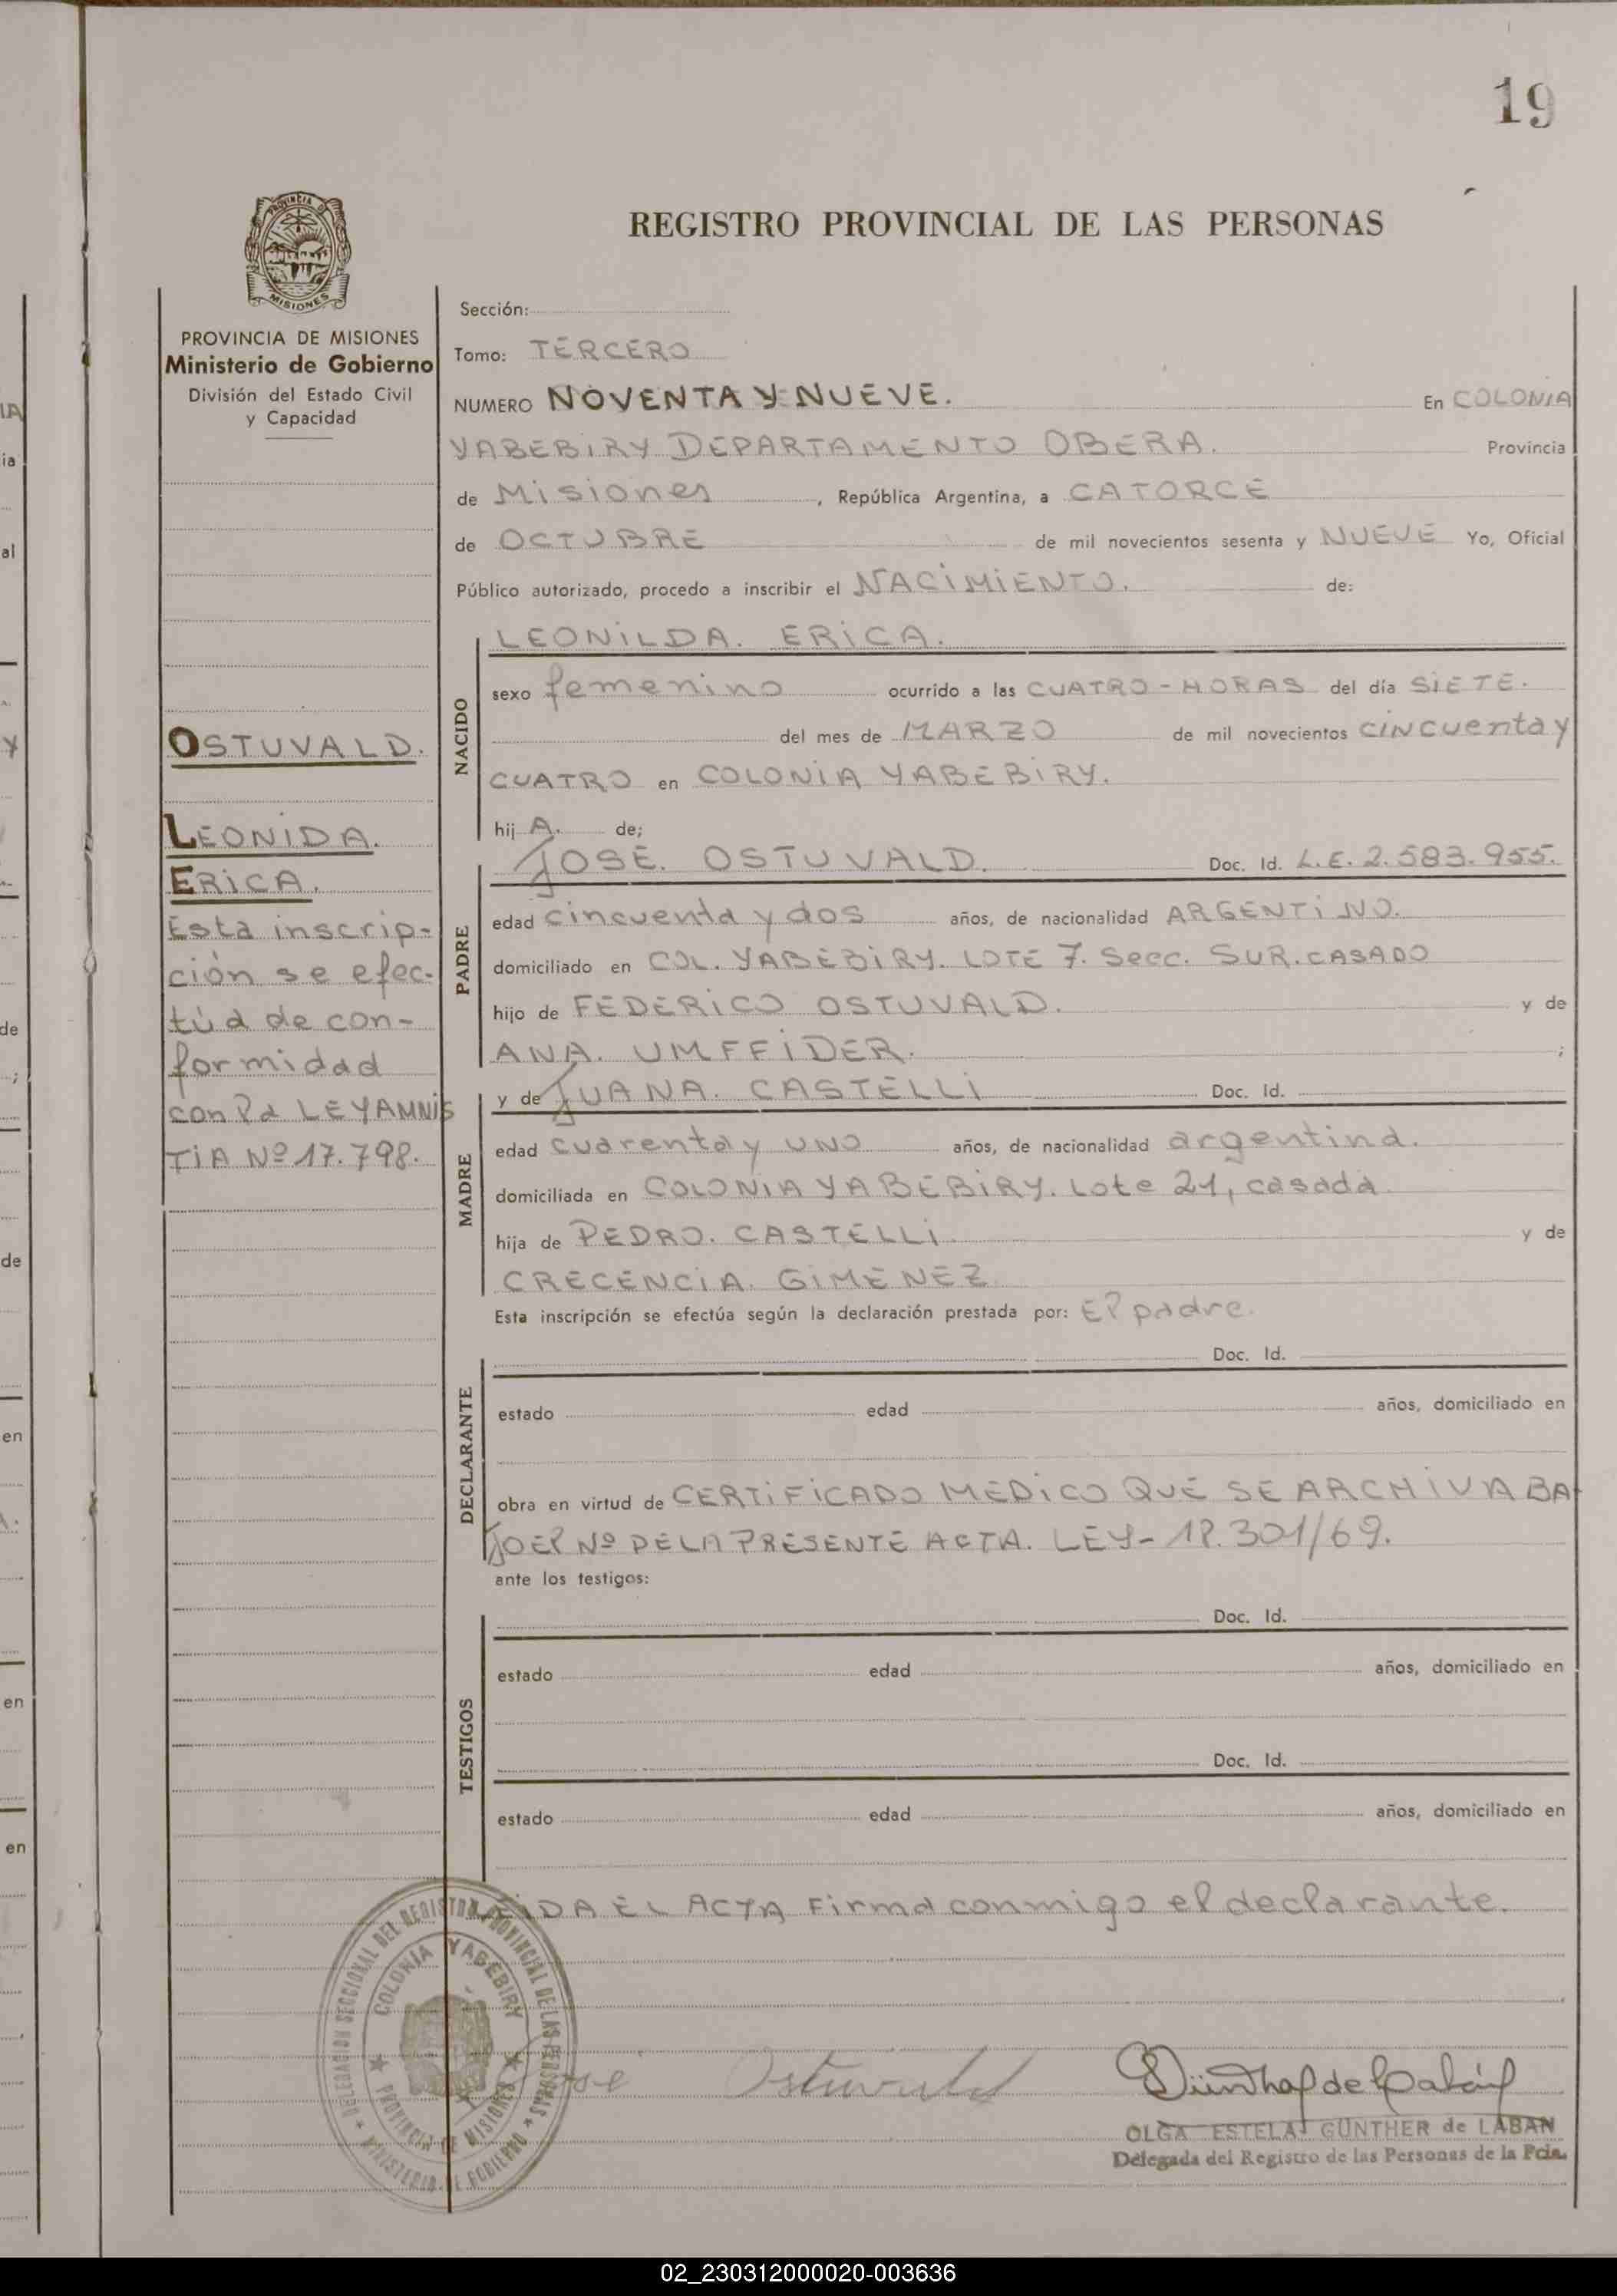 19
REGISTRO PROVINCIAL DE LAS PERSONAS
PROVINCIA DE MISIONES
Ministerio de Gobierno
División del Estado Civil
y Capacidad
OSTUVALD.
LEONIDA.
ERICA.
Esta inscrip-
ción se efec-
túa de con-
formidad
con la LEY AMNIS
TIA Nº 17.798.
Sección:
Tomo: TERCERO
NUMERO NOVENTA Y NUEVE. En COLONIA
YABEBIRY DEPARTAMENTO OBERA. Provincia
de Misiones, República Argentina, a CATORCE
de OCTUBRE de mil novecientos sesenta y NUEVE Yo, Oficial
Público autorizado, procedo a inscribir el NACIMIENTO. de:
NACIDO
LEONILDA. ERICA.
sexo femenino ocurrido a las CUATRO-HORAS del día SIETE.
del mes de MARZO de mil novecientos CINCUenta y
CUATRO en COLONIA YABEBIRY.
hij A. de;
PADRE
JOSE. OSTUVALD. Doc. Id. L.E. 2.583.955.
edad cincuenta y dos años, de nacionalidad ARGENTINO.
domiciliado en COL. YABEBIRY. LOTE 7. Secc. SUR. CASADO
hijo de FEDERICO OSTUVALD. y de
ANA. UMFFIDER. ;
MADRE
y de JUANA. CASTELLI Doc. Id.
edad cuarenta y UNO años, de nacionalidad argentina.
domiciliada en COLONIA YABEBIRY. Lote 21, casada
hija de PEDRO. CASTELLI. y de
CRECENCIA. GIMENEZ
Esta inscripción se efectúa según la declaración prestada por: El padre.
DECLARANTE
Doc. Id.
estado edad años, domiciliado en
obra en virtud de CERTIFICADO MEDICO QUE SE ARCHIVA BA
JO El Nº DE LA PRESENTE ACTA. LEY- 18.301/69.
ante los testigos:
TESTIGOS
Doc. Id.
estado edad años, domiciliado en
Doc. Id.
estado edad años, domiciliado en
LEIDA EL ACTA Firma conmigo el declarante.
DELEGACION SECCIONAL DEL REGISTRO PROVINCIAL DE LAS PERSONAS
MINISTERIO DE GOBIERNO
COLONIA YABEBIRY
PROVINCIA DE MISIONES
José Ostuvald
OLGA ESTELA GUNTHER de LABAN
Delegada del Registro de las Personas de la Pcia.
02_230312000020-003636